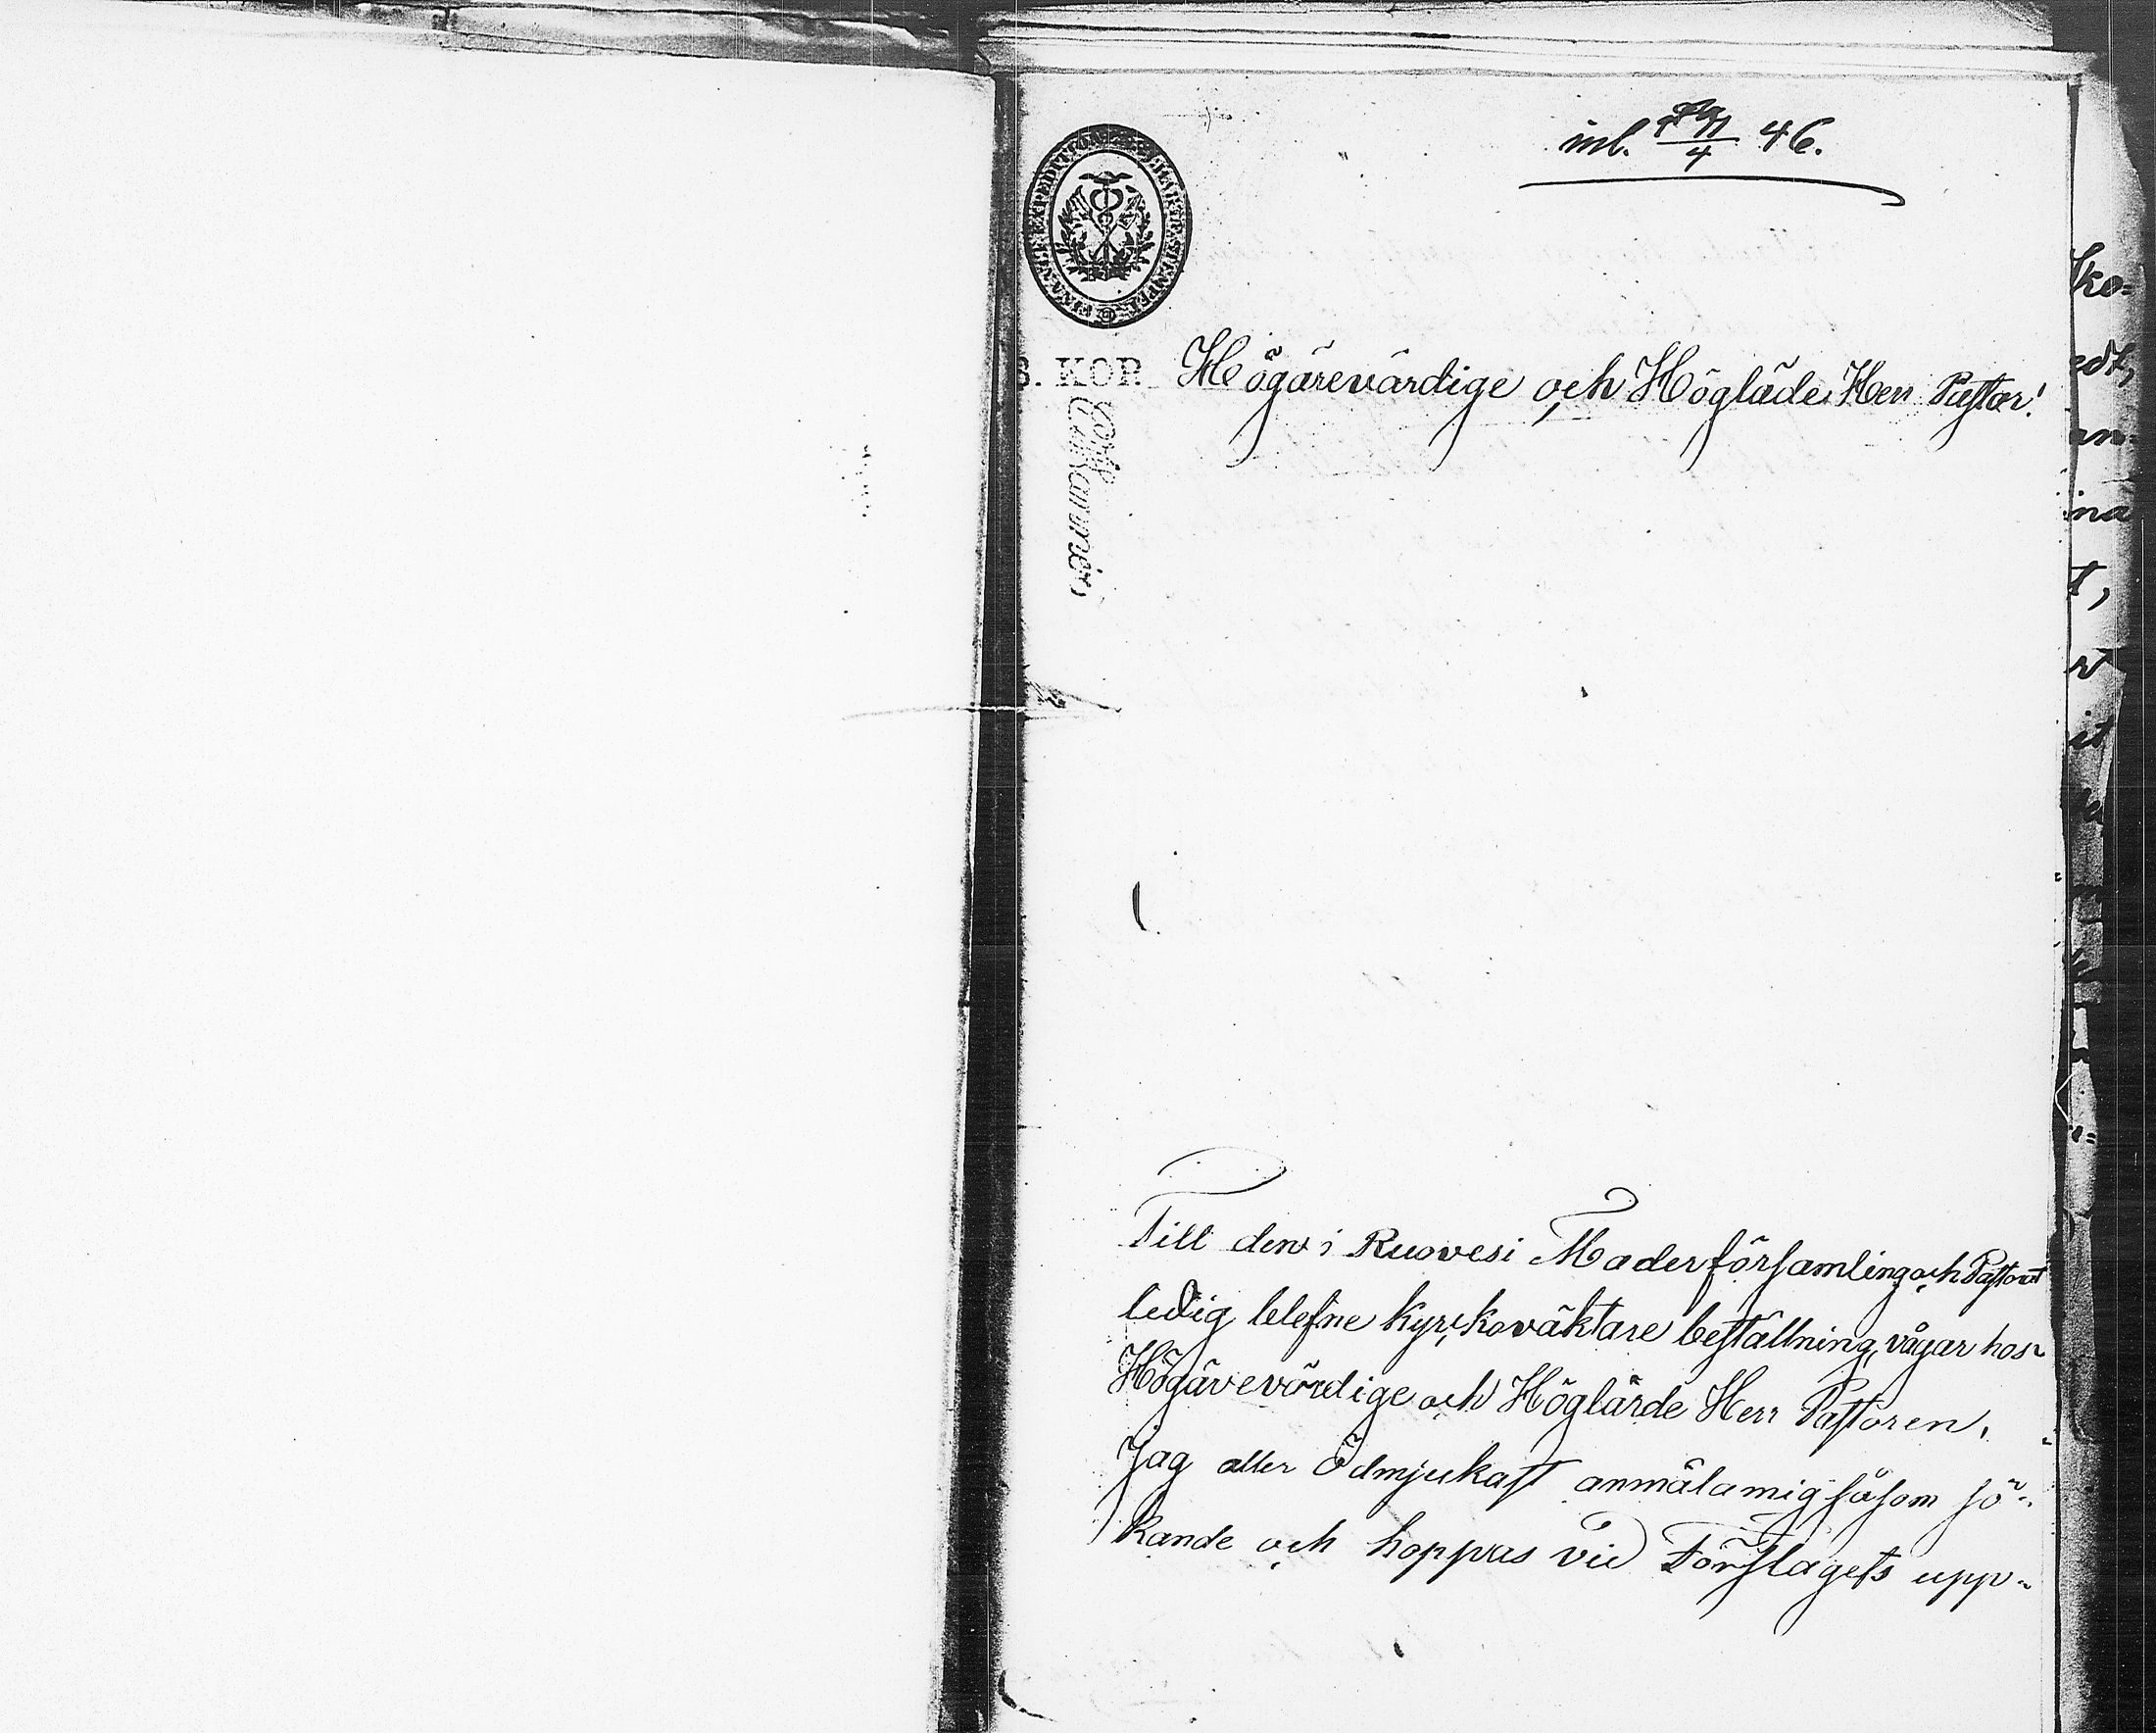 inl. 4 46.
FINANCE EXPEDITION CHARTÆ STEMPEL
3. KOP.
Högärevärdige och Högläde Herr Pastor!
Till den i Ruovesi Moderförsamling och Pastorat
ledig blefne kyrckoväktare beställning, vågar hos
Högärevördige och Höglärde Herr Pastoren,
Jag aller Ödmjukast anmälamig såsom sö-
kande och hoppas vid Förslagets upp-
ko-
edt,
an-
ina
t,
it